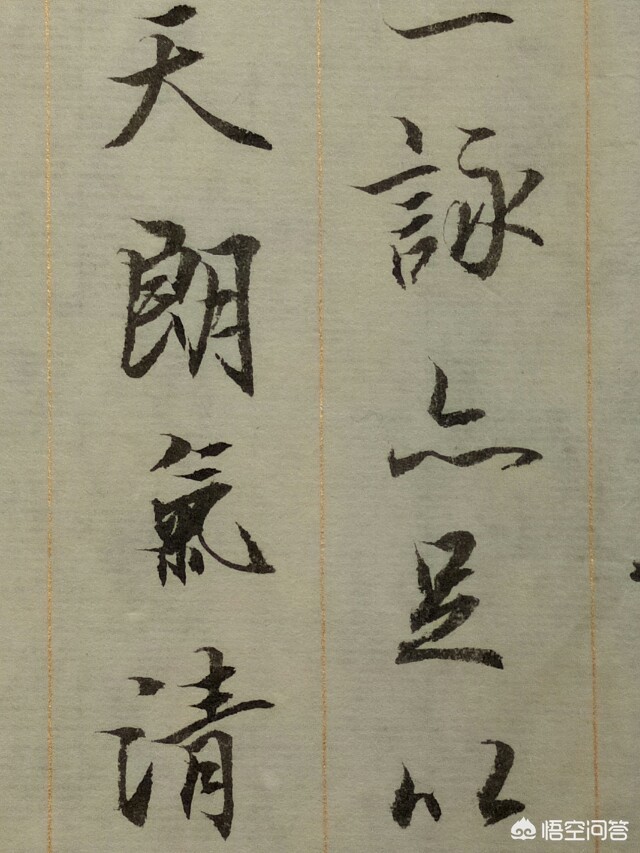 一詠亦足以
天朗氣清
悟空问答